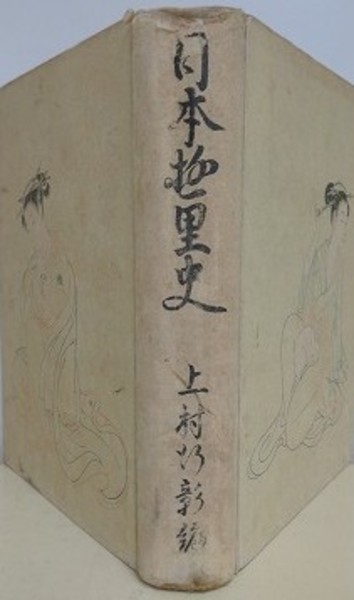 日本遊里史
上村行彰編